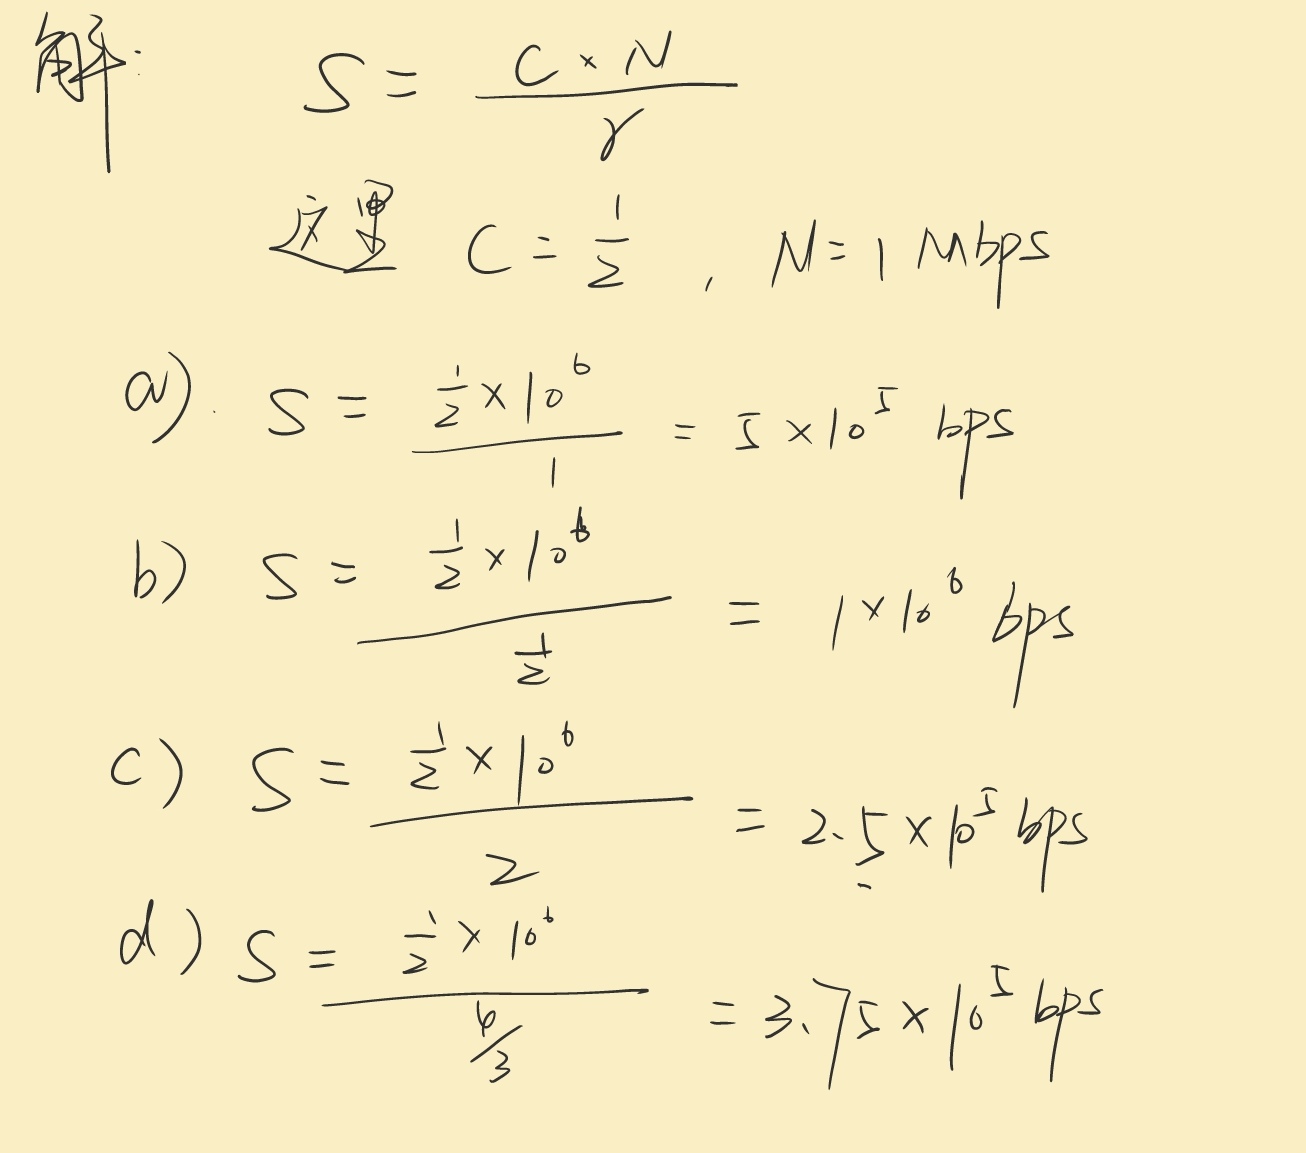 解:
S = (C × N) / r
这里 C = 1/2 , N = 1 Mbps
a). S = (1/2 × 10^6) / 1 = 5 × 10^5 bps
b) S = (1/2 × 10^6) / (1/2) = 1 × 10^6 bps
c) S = (1/2 × 10^6) / 2 = 2.5 × 10^5 bps
d) S = (1/2 × 10^6) / (4/3) = 3.75 × 10^5 bps